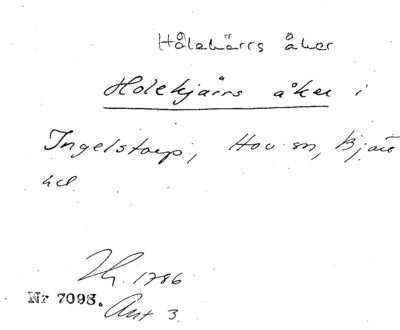 Hålekärrs åker
Holekjärrs åker i
Ingelstorp, Hov sn, Bjäre
hd
Lh. 1786
Nr 7098. Ant 3.